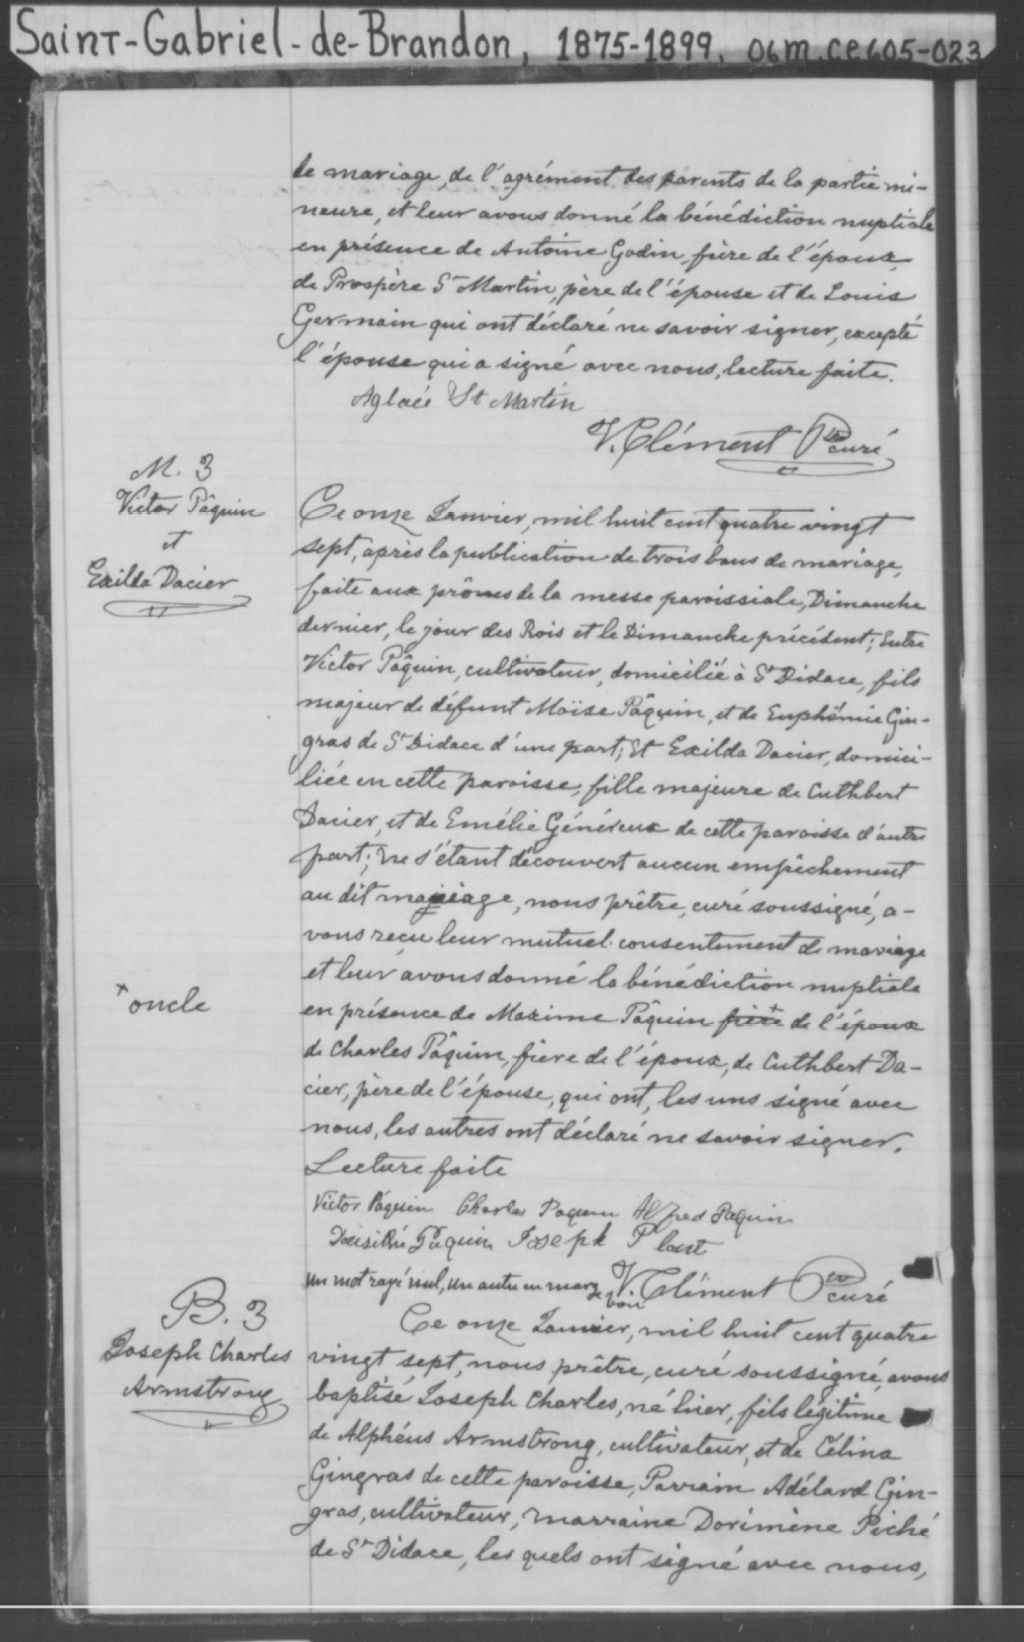 Saint-Gabriel-de-Brandon, 1875-1899. 06m.ce605-023
le mariage, de l'agrément des parents de la partie mi-
neure, et leur avons donné la bénédiction nuptiale
en présence de Antoine Godin, frère de l'époux,
de Prospère St Martin, père de l'épouse et de Louis
Germain qui ont déclaré ne savoir signer, excepté
l'épouse qui a signé avec nous, lecture faite.
Aglaée St Martin
V. Clément Ptre curé
M. 3
Victor Pâquin
et
Exilda Dacier
Ce onze Janvier, mil huit cent quatre vingt
sept, après la publication de trois bans de mariage,
faite aux prônes de la messe paroissiale, Dimanche
dernier, le jour des Rois et le Dimanche précédent; Entre
Victor Pâquin, cultivateur, domicilié à St Didace, fils
majeur de défunt Moïse Pâquin, et de Euphémie Gin-
gras de St Didace d'une part; Et Exilda Dacier, domici-
liée en cette paroisse, fille majeure de Cuthbert
Dacier, et de Emélie Généreux de cette paroisse d'autre
part; Ne s'étant découvert aucun empêchement
au dit mariage, nous prêtre, curé soussigné, a-
vons reçu leur mutuel consentement de mariage
et leur avons donné la bénédiction nuptiale
en présence de Maxime Pâquin frère + de l'époux
+ oncle
de Charles Pâquin, frère de l'époux, de Cuthbert Da-
cier, père de l'épouse, qui ont, les uns signé avec
nous, les autres ont déclaré ne savoir signer.
Lecture faite
Victor Pâquin Charles Paquin Alfred Paquin
Paquin Joseph Plant
Un mot rayé nul, un autre en marge bon
V. Clément Ptre curé
B. 3
Joseph Charles
Armstrong
Ce onze Janvier, mil huit cent quatre
vingt sept, nous prêtre, curé soussigné, avons
baptisé Joseph Charles, né hier, fils légitime
de Alphéus Armstrong, cultivateur, et de Célina
Gingras de cette paroisse, Parrain Adélard Gin-
gras, cultivateur, Marraine Dorimène Piché
de St Didace, les quels ont signé avec nous,